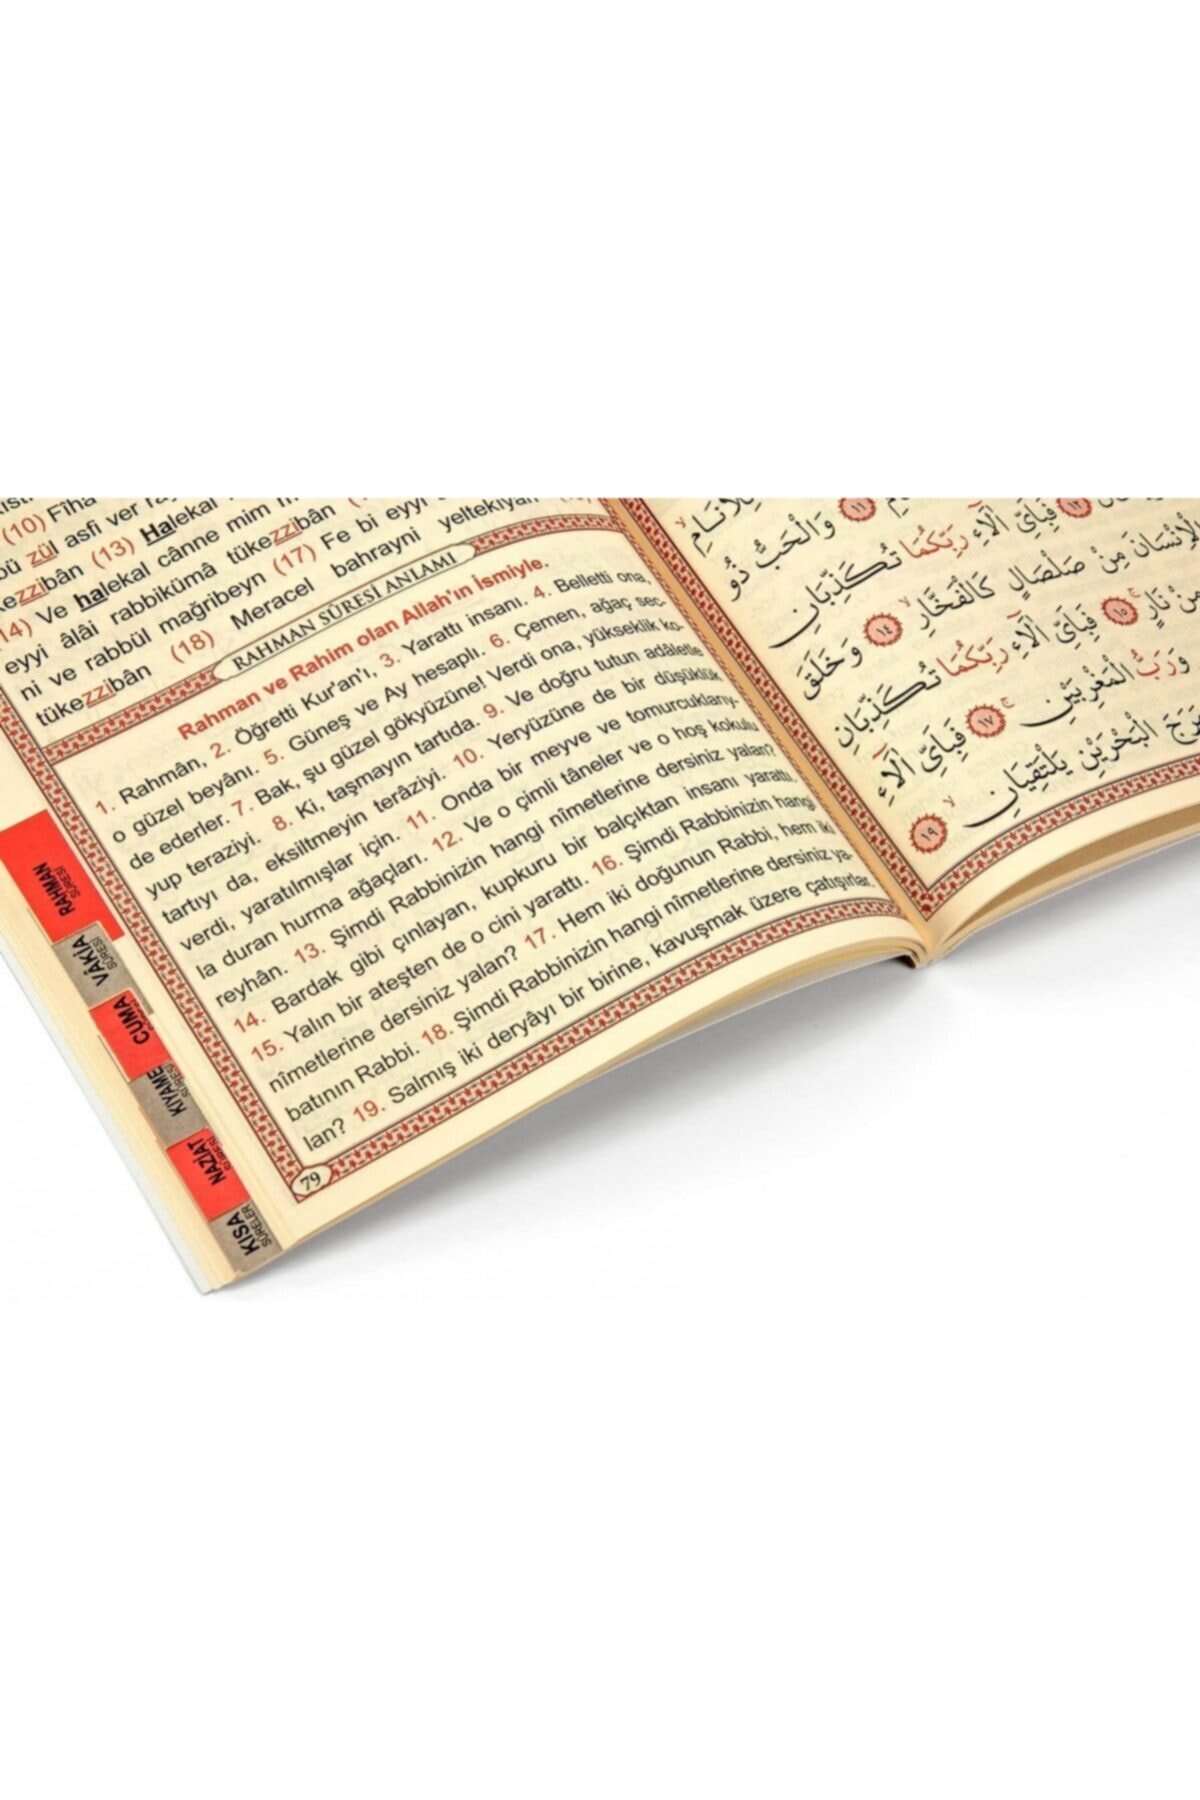 (10) Fîha
zül asfi ver
(13) Halekal
(14) Ve halekal cânne mim
eyyi âlâi rabbikümâ tükezzibân
ni ve rabbül mağribeyn (17) Fe bi eyyi
tükezzibân (18) Meracel bahrayni yeltekıyân
RAHMAN SÛRESİ ANLAMI
Rahman ve Rahim olan Allah'ın İsmiyle.
1. Rahmân, 2. Öğretti Kur'an'ı, 3. Yarattı insanı. 4. Belletti ona,
o güzel beyânı. 5. Güneş ve Ay hesaplı. 6. Çemen, ağaç sec-
de ederler. 7. Bak, şu güzel gökyüzüne! Verdi ona, yükseklik ko-
yup teraziyi. 8. Ki, taşmayın tartıda. 9. Ve doğru tutun adâletle
tartıyı da, eksiltmeyin terâziyi. 10. Yeryüzüne de bir düşüklük
verdi, yaratılmışlar için. 11. Onda bir meyve ve tomurcuklany-
la duran hurma ağaçları. 12. Ve o çimli tâneler ve o hoş kokulu
reyhân. 13. Şimdi Rabbinizin hangi nîmetlerine dersiniz yalan?
14. Bardak gibi çınlayan, kupkuru bir balçıktan insanı yarattı.
15. Yalın bir ateşten de o cini yarattı. 16. Şimdi Rabbinizin hangi
nîmetlerine dersiniz yalan? 17. Hem iki doğunun Rabbi, hem iki
batının Rabbi. 18. Şimdi Rabbinizin hangi nîmetlerine dersiniz ya-
lan? 19. Salmış iki deryâyı bir birine, kavuşmak üzere çatışırlar.
79
RAHMAN SÛRESİ
VÂKİA SÛRESİ
CUMA
KIYAME SÛRESİ
NAZİAT SÛRESİ
KISA SÛRELER
لِلْأَنَامِ
١١ وَالْحَبُّ ذُو
١٢ فَبِأَيِّ آلَاءِ رَبِّكُمَا تُكَذِّبَانِ
الْإِنْسَانَ مِنْ صَلْصَالٍ كَالْفَخَّارِ ١٤ وَخَلَقَ
مِنْ نَارٍ ١٥ فَبِأَيِّ آلَاءِ رَبِّكُمَا تُكَذِّبَانِ
وَرَبُّ الْمَغْرِبَيْنِ ١٧ فَبِأَيِّ آلَاءِ
الْبَحْرَيْنِ يَلْتَقِيَانِ ١٩